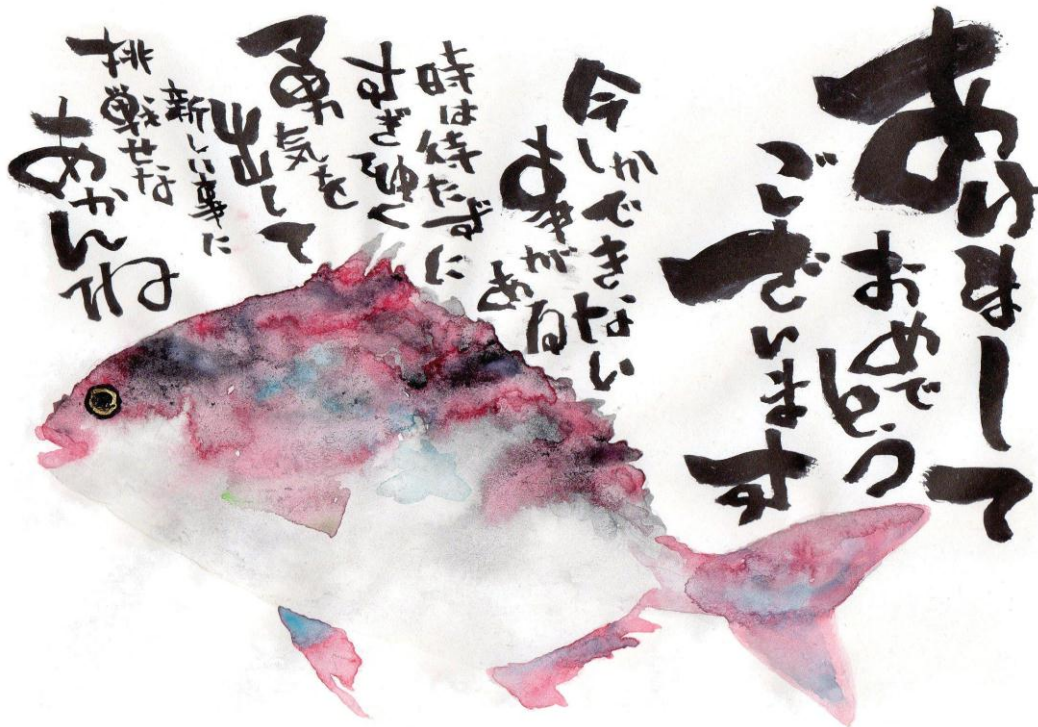 あけまして
おめでとう
ございます
今しかできない
事がある
時は待たずに
すぎてゆく
勇気を
出して
新しい事に
挑戦せな
あかんね